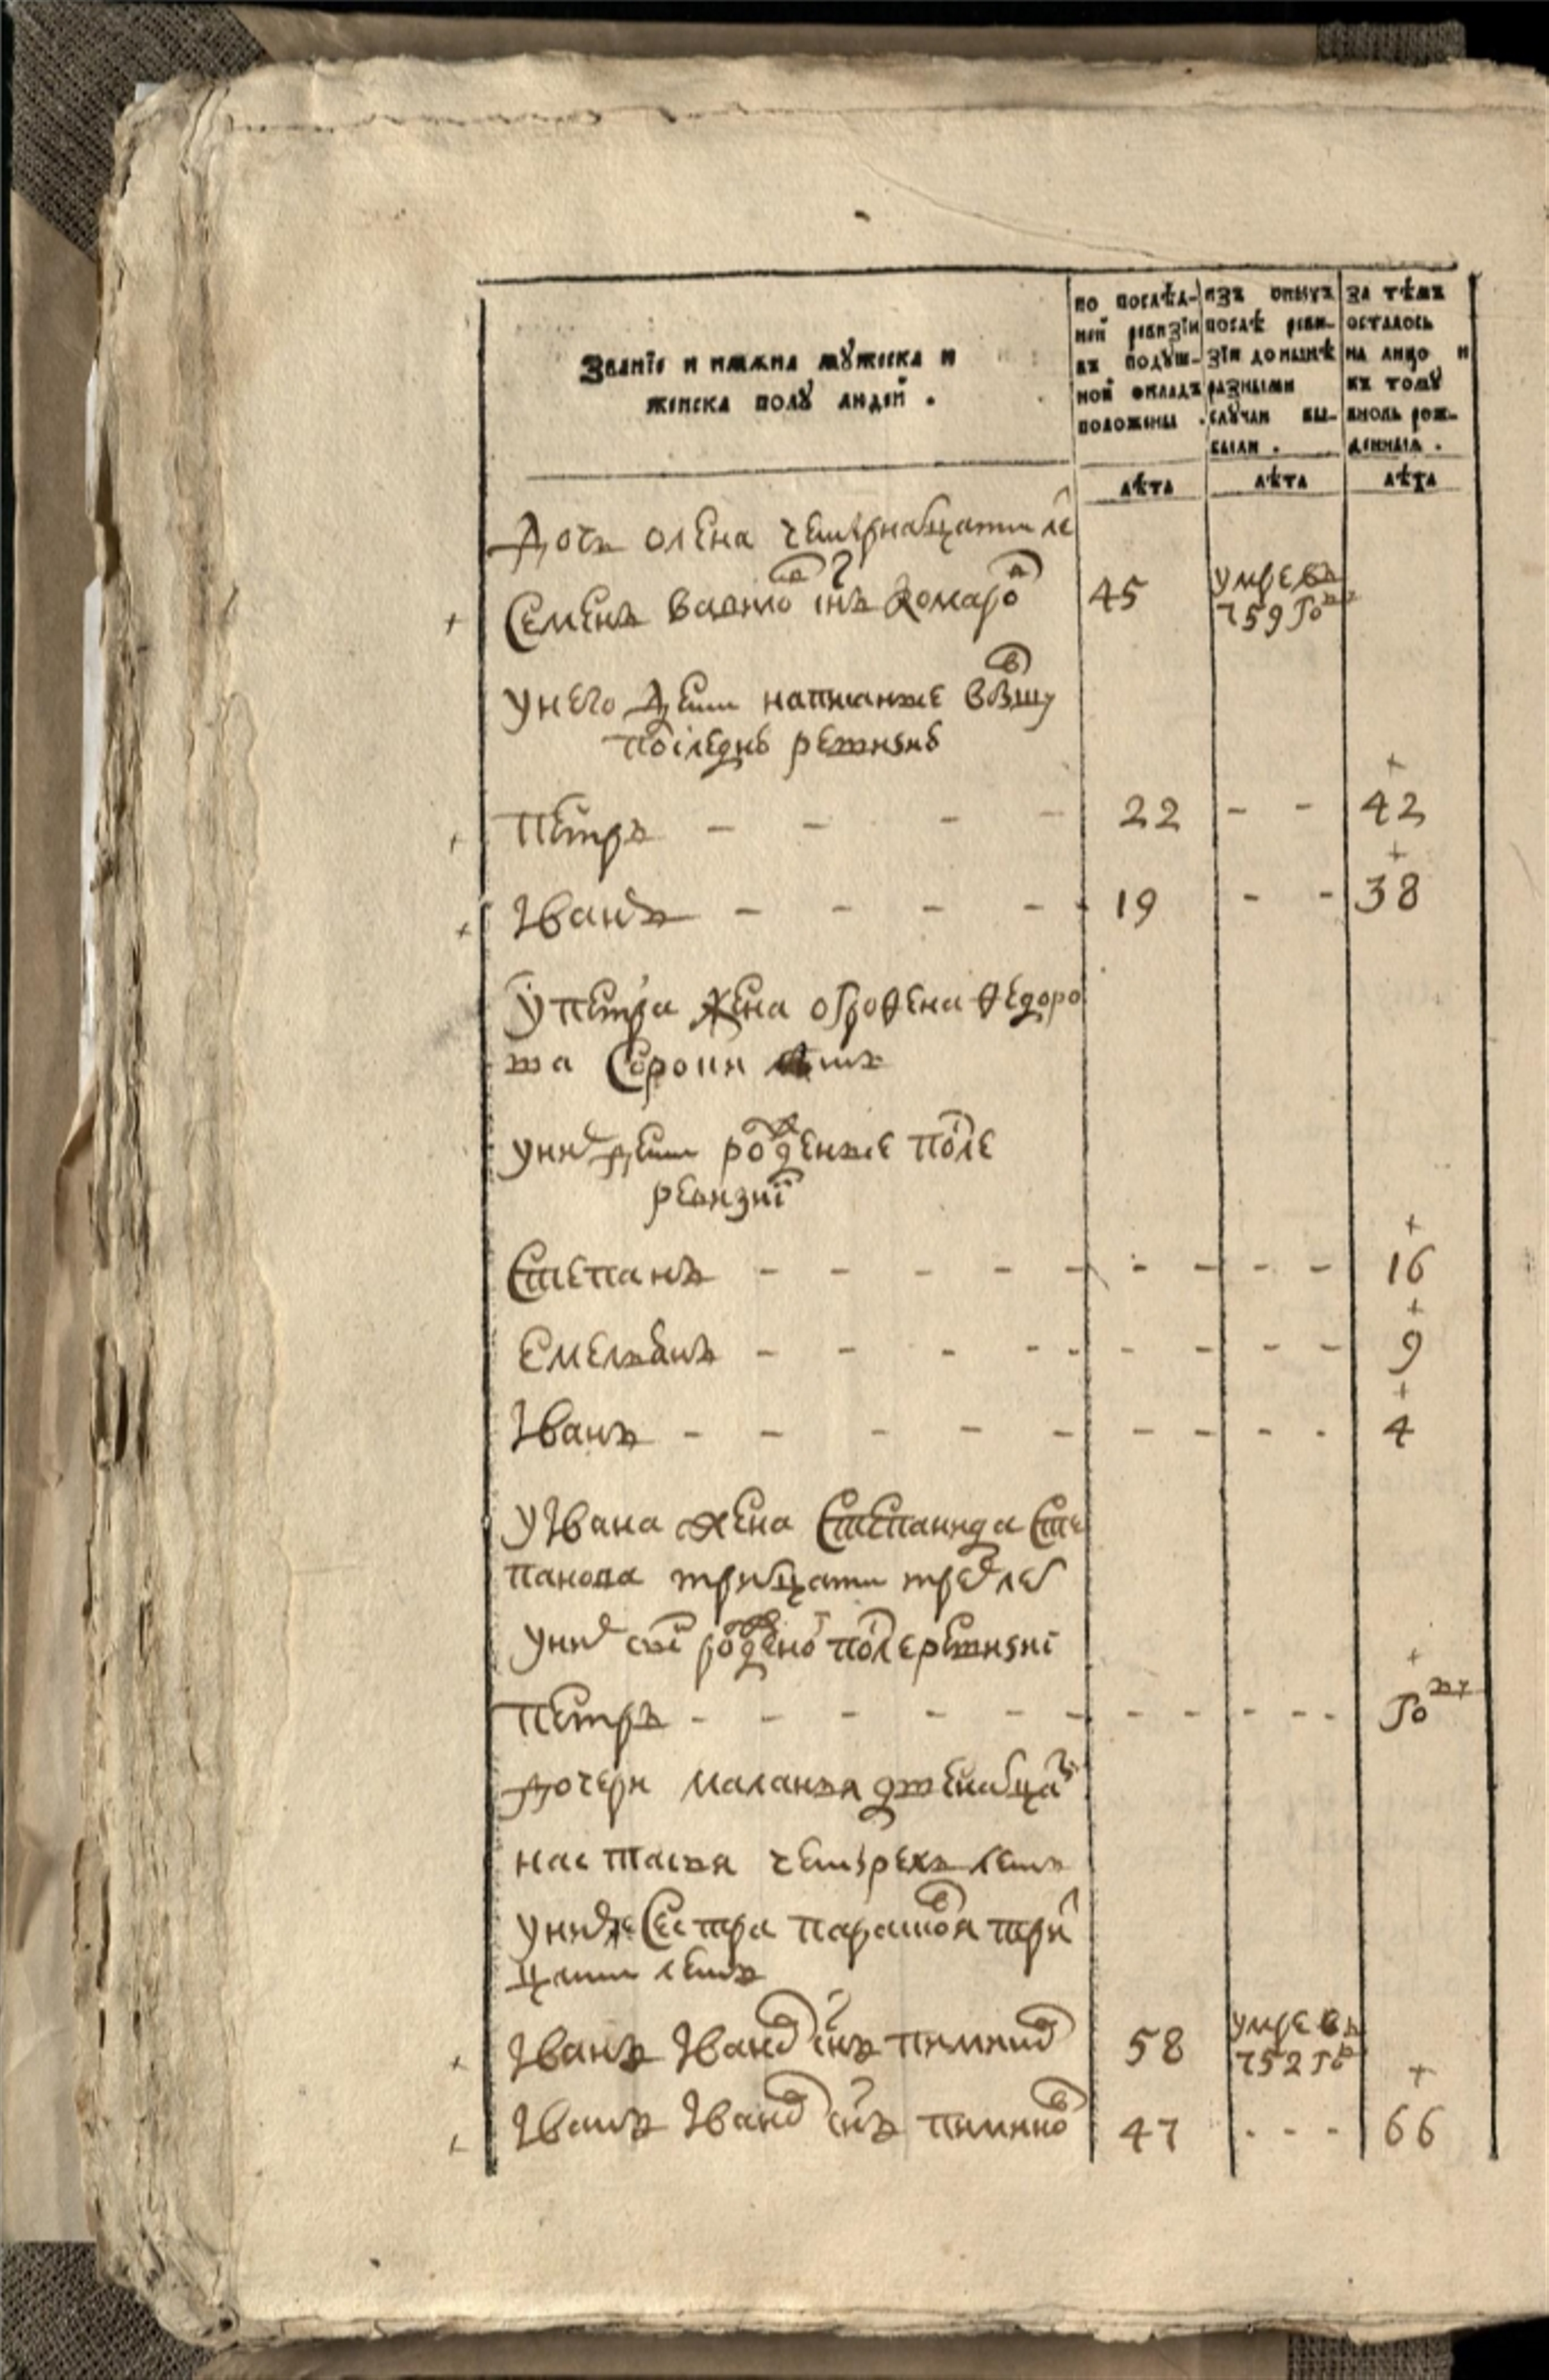 Званїе и имяна мужеска и
женска полу людей .
по послѣд-
ней ревизїи
въ подуш-
ной окладъ
положены .
изъ оныхъ
послѣ реви-
зїи донынѣ
разными
случаи вы-
были .
за тѣмъ
осталось
на лицо и
къ тому
вновь рож-
денныя .
лѣта лѣта лѣта
Дочь олена четырнатцати ле
Семенъ снъ комаро в 45 умре въ
759 го
унего дети написанные в бы шу
последнею ревизию
петръ - - - - 22 - - 42
Іванъ - - - - 19 - - 38
У петра жена огрофена федоро
ва сорони летъ
уних дети рожденые после
ревизиї
Степанъ - - - - - - - - - 16
Емельянъ - - - - - - - - - 9
Іванъ - - - - - - - - - 4
у Івана жена Степанида Сте
панова тритцати трех лет
уних снъ рожденой после ревизиї
петръ - - - - - - - - - - - го ду
дочери маланья двенатца ти
настасья четырехъ летъ
уних же Сестра парасковя три
цати летъ
Іванъ Іванов снъ пиминов 58 умре въ
752 го
Іванъ Іванов снъ пиминов 47 - - - 66